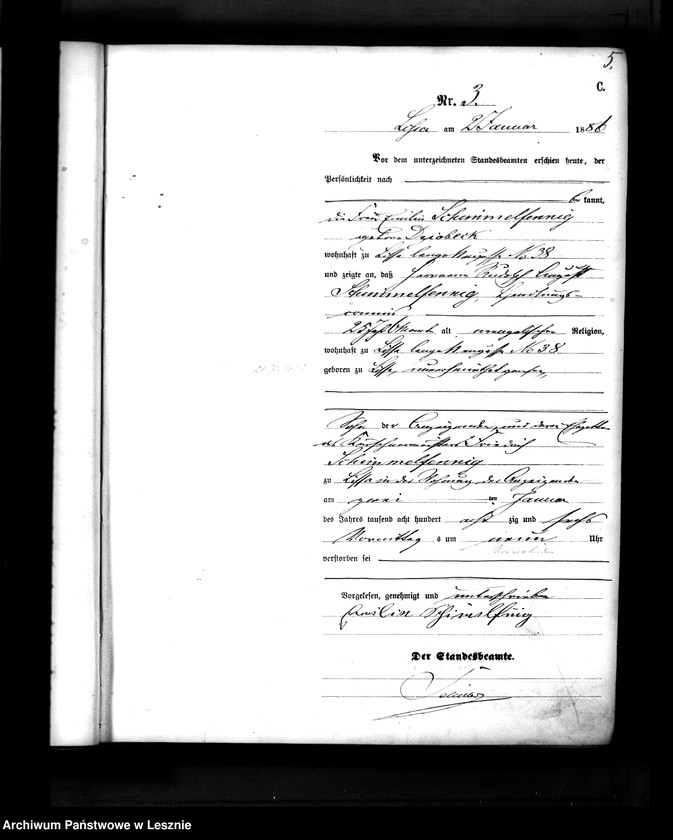 5.
C.
Nr. 3.
Lissa am 2 Januar 1886
Vor dem unterzeichneten Standesbeamten erschien heute, der
Persönlichkeit nach
be kannt,
die Frau Emilie Schimmelfennig
geborne Dziobeck
wohnhaft zu Lissa No 38
und zeigte an, daß Hermann Rudolf August
Schimmelfennig, Handlungs-
commis
25 Jahr Monate alt evangelischer Religion,
wohnhaft zu Lissa No 38
geboren zu Lissa, unverheirathet gewesen,
Sohn der Anzeigenden und deren Ehegatten
des Kürschnermeisters Friedrich
Schimmelfennig
zu Lissa in der Wohnung der Anzeigende
am zwei ten Januar
des Jahres tausend acht hundert acht zig und sechs
Vormittags um neun Uhr
verstorben sei
Vorgelesen, genehmigt und unterschrieben
Emilie Schimelfenig
Der Standesbeamte.
Archiwum Państwowe w Lesznie